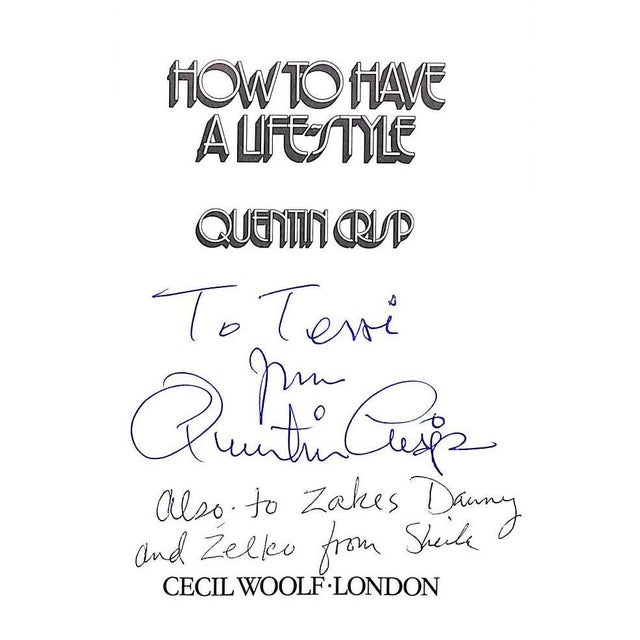 HOW TO HAVE
A LIFE-STYLE
QUENTIN CRISP
To Terri
from
Quentin Crisp
Also to Zakes Danny
and Zelko from Sheila
CECIL WOOLF · LONDON